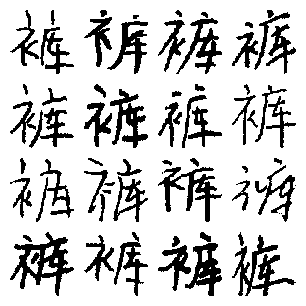 裤裤裤裤
裤裤裤裤
裤裤裤裤
裤裤裤裤